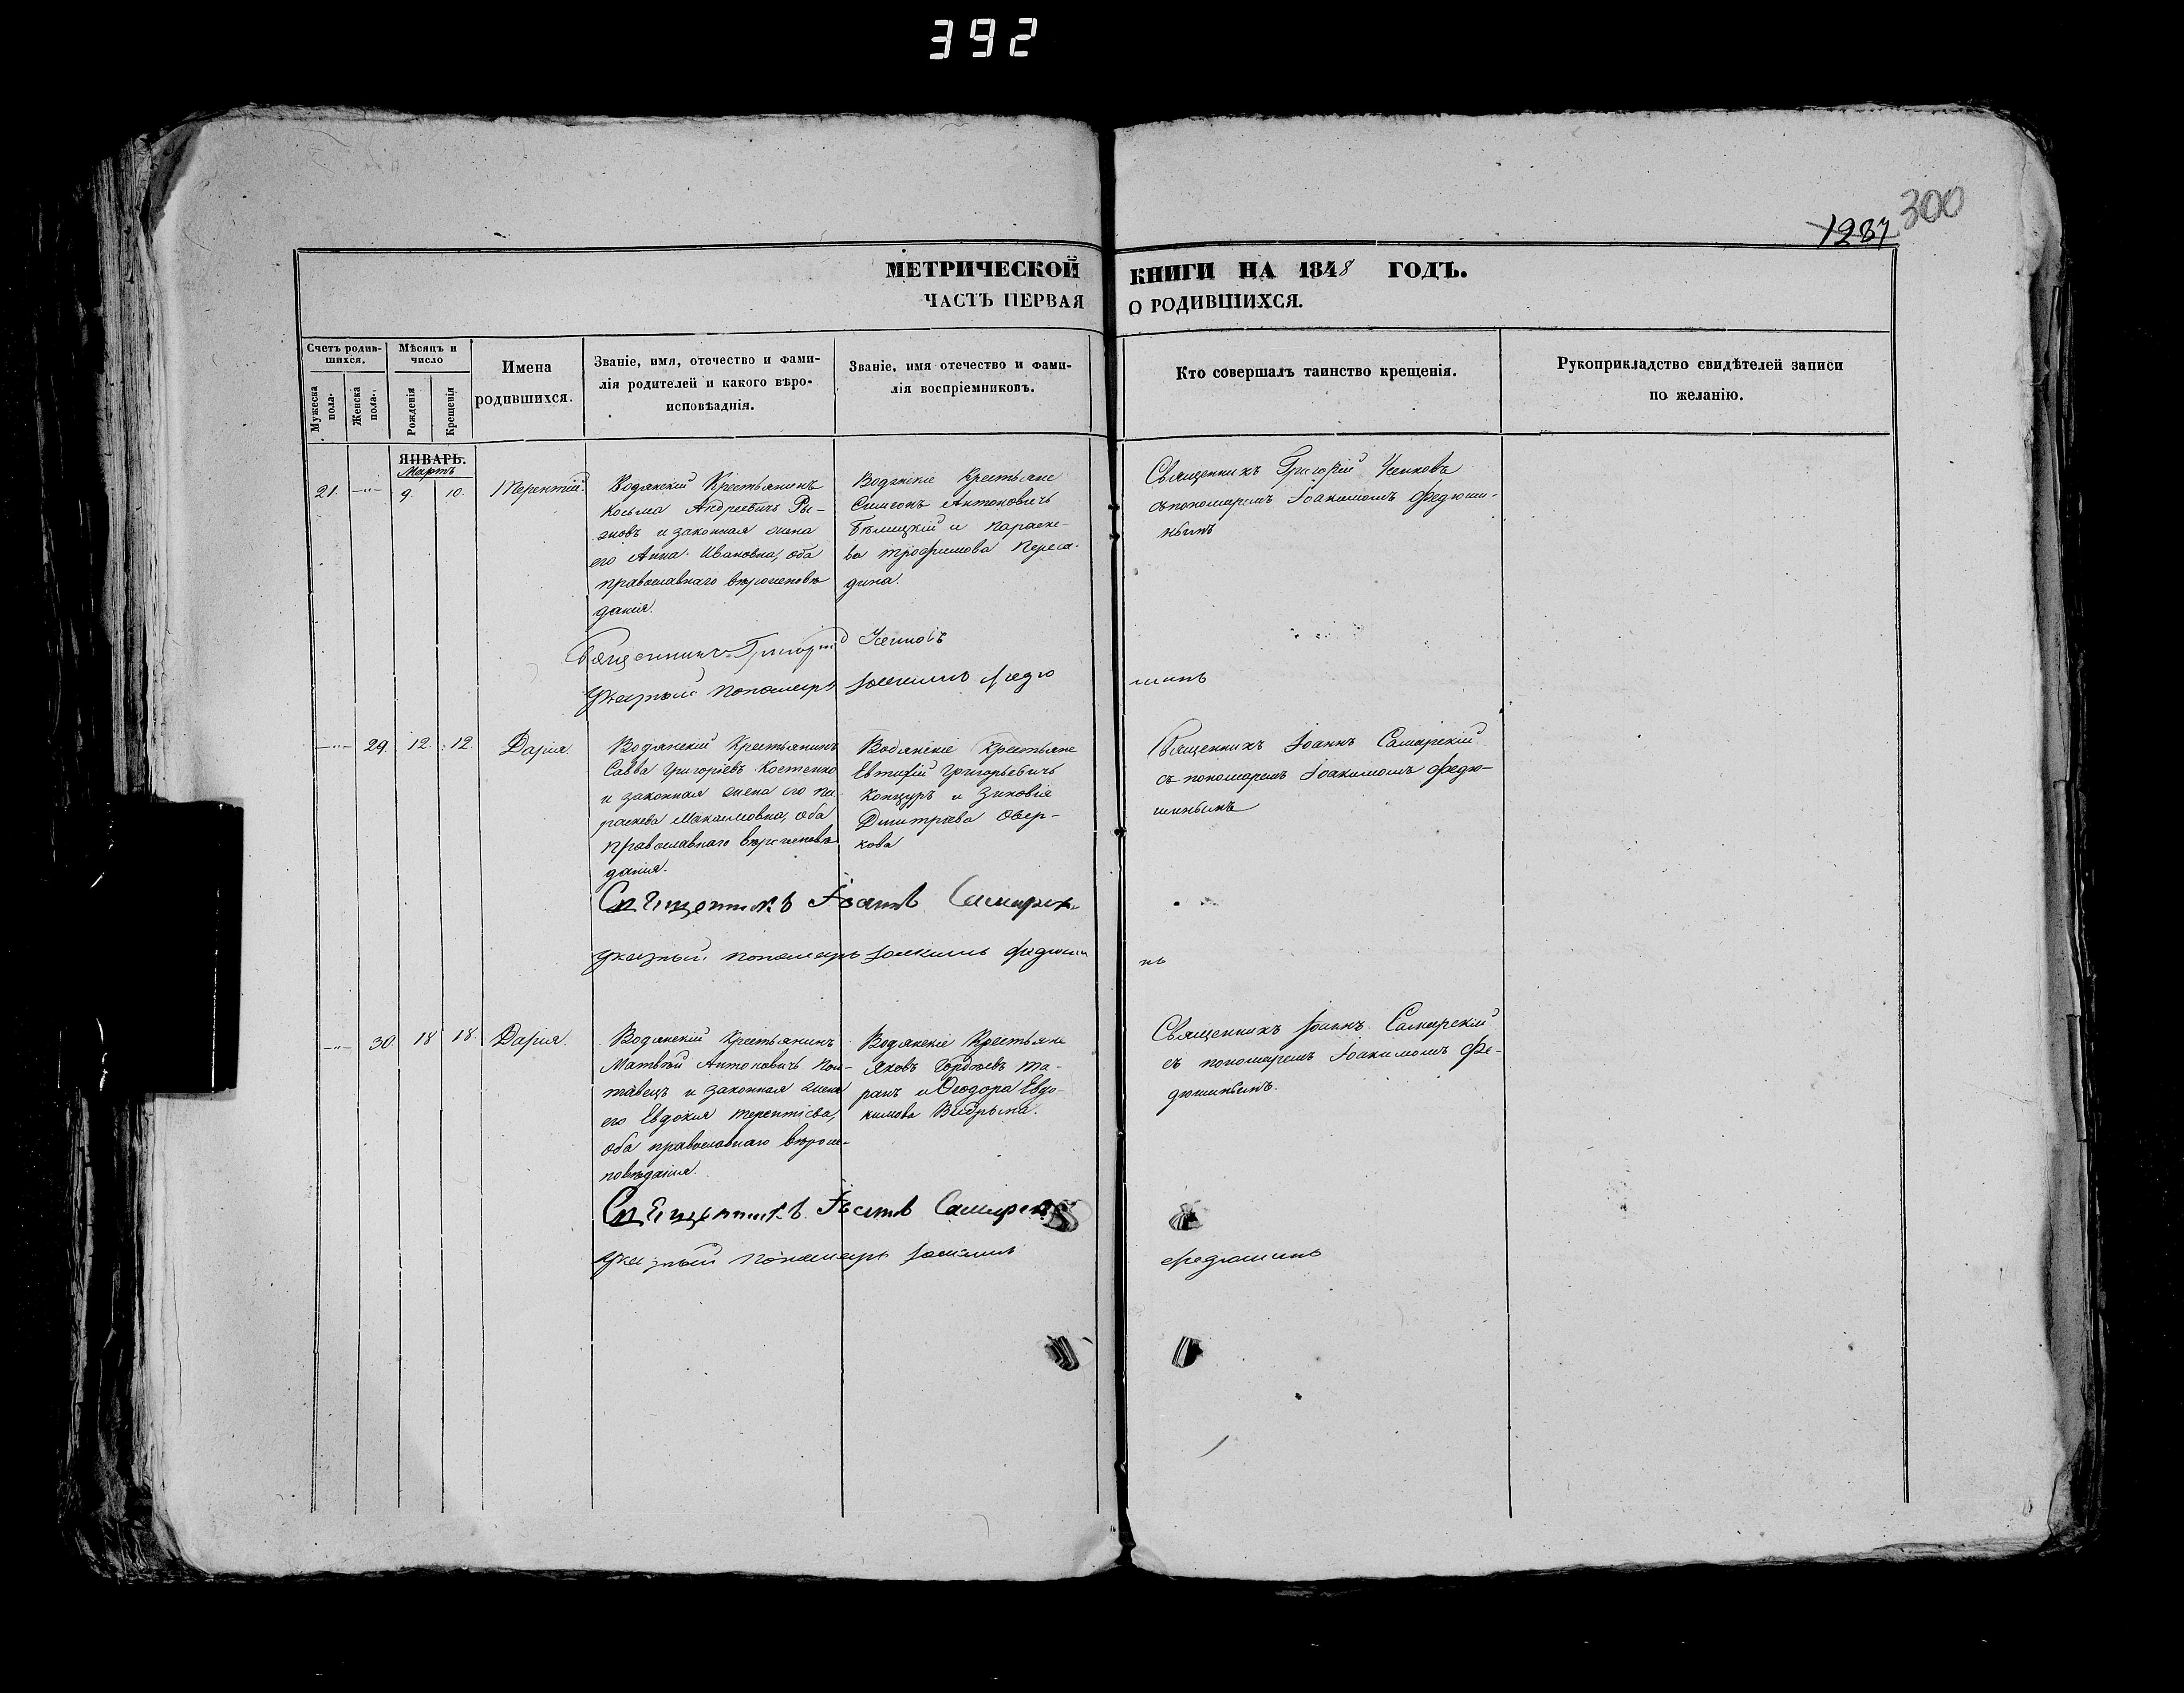 392
300
1287
МЕТРИЧЕСКОЙ КНИГИ НА 1848 ГОДЪ.
ЧАСТЬ ПЕРВАЯ О РОДИВШИХСЯ.
Счетъ родив-
шихся.
Мужеска
пола.
Женска
пола.
Мѣсяцъ и
число
Рожденія
Крещенія
Имена
родившихся.
Званіе, имя, отечество и фами-
лія родителей и какого вѣро-
исповѣаднія.
Званіе, имя отечество и фами-
лія воспріемниковъ.
Кто совершалъ таинство крещенія.
Рукоприкладство свидѣтелей записи
по желанію.
ЯНВАРЬ.
Мартъ
21. —"— 9. 10. Терентій.
Водянскій Крестьянинъ
Косьма Андреевичъ
и законная жена
его Анна Ивановна, оба
православнаго вѣроисповѣ
данія.
Водянскіе Крестьяне
Симеонъ Антоновичъ
Бѣлицкій и Параске-
ва Трофимова Переса-
дина.
Священникъ Григорій
съ пономаремъ Іоакимомъ Федюши-
нымъ
Священникъ Григорій
Указный Пономарь Іоакимъ Федю
шинъ
—"— 29. 12. 12. Дарія.
Водянскій Крестьянинъ
Савва Григоріевъ Костенко
и законная жена его Па-
раскева Максимовна, оба
православнаго вѣроисповѣ
данія.
Водянскіе Крестьяне
Евтихій Григорьевичъ
Концуръ и Зиновія
Дмитріева Овер-
кова
Священникъ Іоаннъ Самарскій
съ пономаремъ Іоакимомъ Федю-
шинымъ
Священникъ Іоаннъ Самарск
Указный пономарь Іоакимъ Федюши
нъ
—"— 30. 18 18. Дарія.
Водянскій Крестьянинъ
Матвѣй Антоновичъ Пол-
тавецъ и законная жена
его Евдокія Терентіева,
оба православнаго вѣроис-
повѣданія.
Водянскіе Крестьяне
Яковъ Гордѣевъ Та-
ранъ и Ѳеодора Евдо-
кимова
Священникъ Іоаннъ Самарскій
съ пономаремъ Іоакимомъ Фе-
дюшинымъ.
Священникъ Іоаннъ Самарск
Указный пономарь Іоакимъ
Федюшинъ